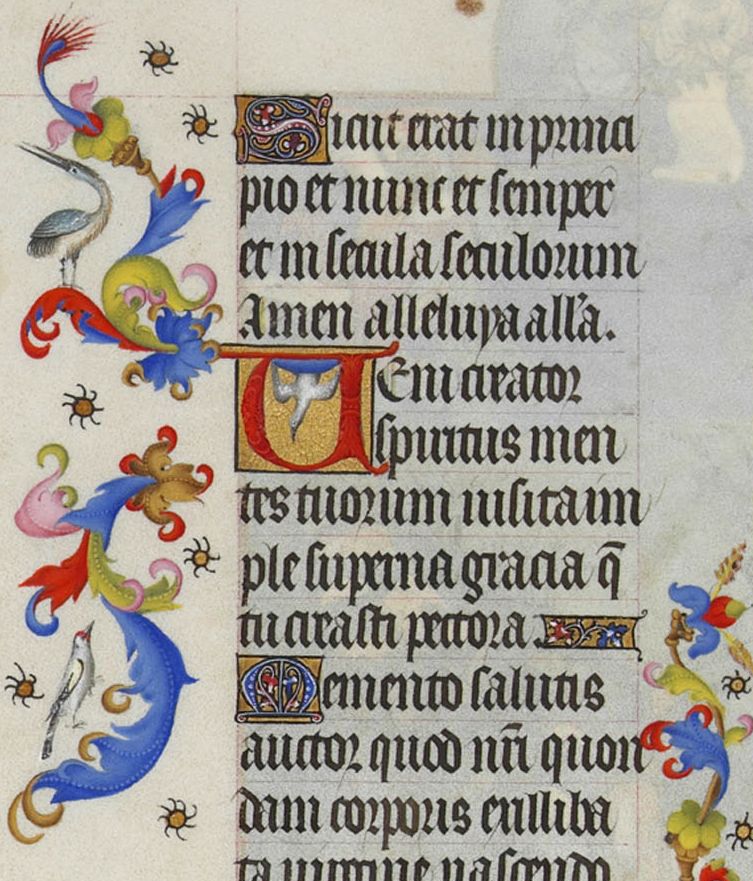 Sicut erat in princi
pio et nunc et semper
et in secula seculorum
Amen alleluya all'a.
UEni creator
spiritus men
tes tuorum uisita im
ple superna gracia q̄
tu creasti pectora
Memento salutis
auctor quod nr̄i quon
dam corporis ex illiba
ta uirgine nascendo